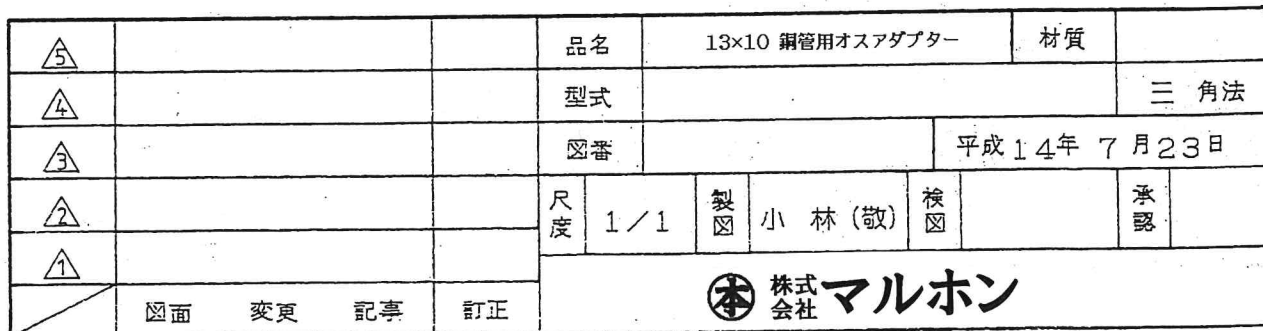 5 品名 13×10 銅管用オスアダプター 材質
4 型式 三 角法
3 図番 平成14年 7月23日
2 尺度 1/1 製図 小 林(敬) 検図 承認
1
図面 変更 記事 訂正 本 株式会社 マルホン